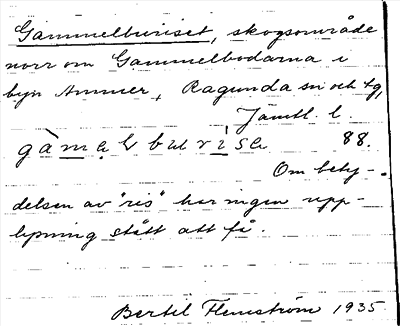 Gammelburiset, skogsområde
norr om Gammelbodarna i
byn Ammer, Ragunda sn och tg,
Jämtl. l.
88.
Om bety-
delsen av "ris" har ingen upp-
lysning stått att få.
Bertil Flemström 1935